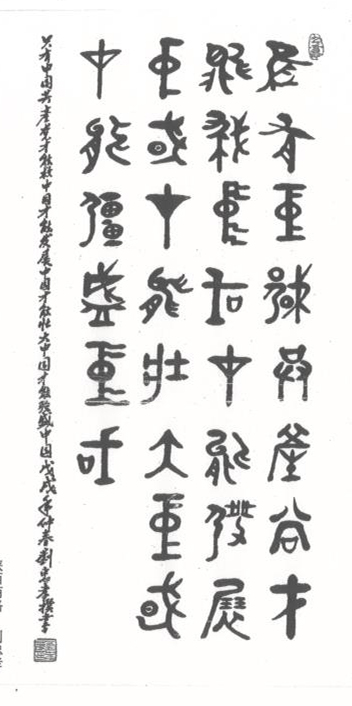 只有中國共產黨才
能救中國才能發展
中國才能壯大中國
才能強盛中國
只有中国共产党才能救中国才能发展中国才能壮大中国才能强盛中国戊戌年仲春刘